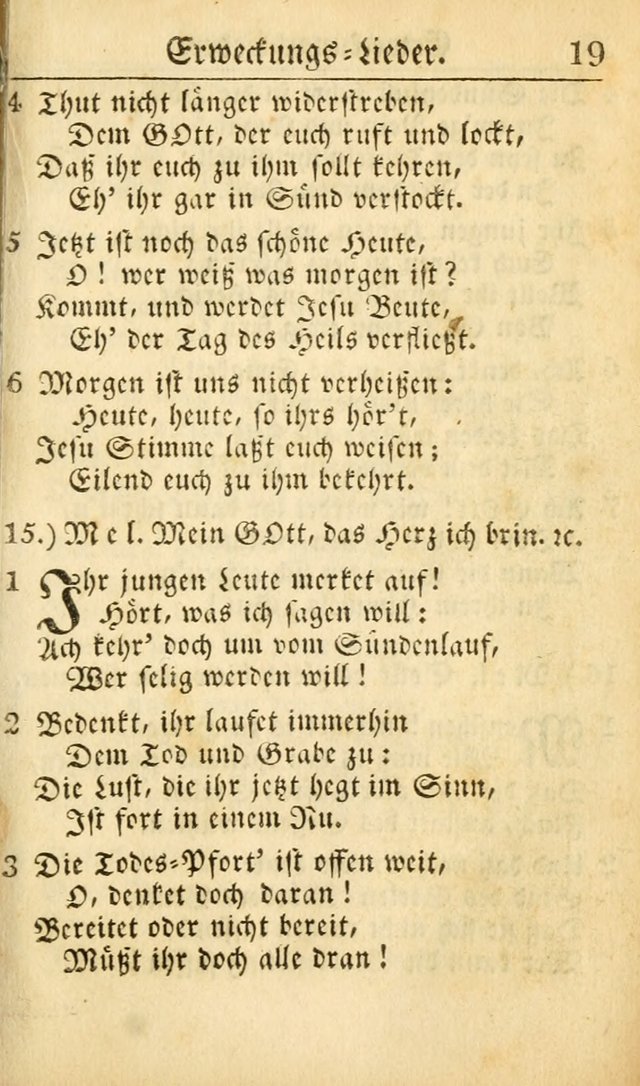 Erweckungs-Lieder. 19
4 Thut nicht länger widerstreben,
Dem GOtt, der euch ruft und lockt,
Daß ihr euch zu ihm sollt kehren,
Eh' ihr gar in Sünd verstockt.
5 Jetzt ist noch das schöne Heute,
O! wer weiß was morgen ist?
Kommt, und werdet Jesu Beute,
Eh' der Tag des Heils verfließt.
6 Morgen ist uns nicht verheißen:
Heute, heute, so ihrs hör't,
Jesu Stimme laßt euch weisen;
Eilend euch zu ihm bekehrt.
15.) Mel. Mein GOtt, das Herz ich brin. ꝛc.
1 Ihr jungen Leute merket auf!
Hört, was ich sagen will:
Ach kehr' doch um vom Sündenlauf,
Wer selig werden will!
2 Bedenkt, ihr laufet immerhin
Dem Tod und Grabe zu:
Die Lust, die ihr jetzt hegt im Sinn,
Ist fort in einem Nu.
3 Die Todes-Pfort' ist offen weit,
O, denket doch daran!
Bereitet oder nicht bereit,
Müßt ihr doch alle dran!